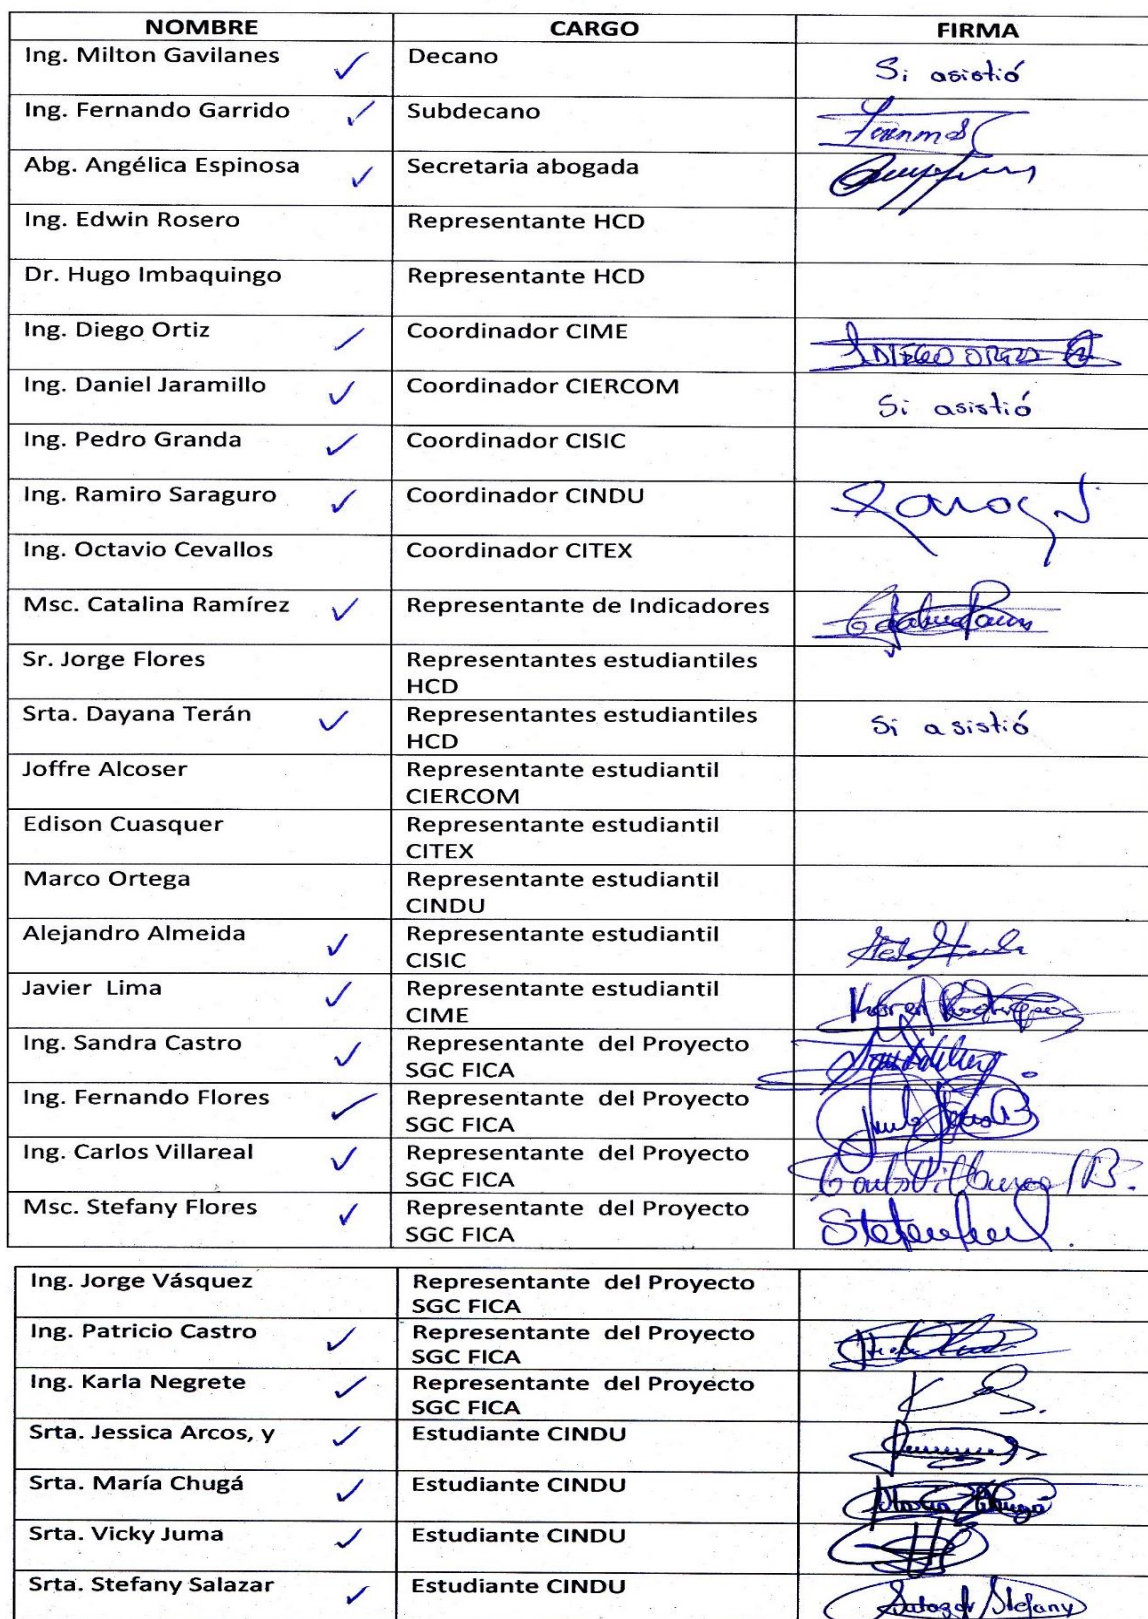 NOMBRE CARGO FIRMA
Ing. Milton Gavilanes Decano Si asistió
Ing. Fernando Garrido Subdecano
Abg. Angélica Espinosa Secretaria abogada
Ing. Edwin Rosero Representante HCD
Dr. Hugo Imbaquingo Representante HCD
Ing. Diego Ortiz Coordinador CIME
Ing. Daniel Jaramillo Coordinador CIERCOM Si asistió
Ing. Pedro Granda Coordinador CISIC
Ing. Ramiro Saraguro Coordinador CINDU
Ing. Octavio Cevallos Coordinador CITEX
Msc. Catalina Ramírez Representante de Indicadores
Sr. Jorge Flores Representantes estudiantiles
HCD
Srta. Dayana Terán Representantes estudiantiles Si asistió
HCD
Joffre Alcoser Representante estudiantil
CIERCOM
Edison Cuasquer Representante estudiantil
CITEX
Marco Ortega Representante estudiantil
CINDU
Alejandro Almeida Representante estudiantil
CISIC
Javier Lima Representante estudiantil
CIME
Ing. Sandra Castro Representante del Proyecto
SGC FICA
Ing. Fernando Flores Representante del Proyecto
SGC FICA
Ing. Carlos Villareal Representante del Proyecto
SGC FICA
Msc. Stefany Flores Representante del Proyecto
SGC FICA
Ing. Jorge Vásquez Representante del Proyecto
SGC FICA
Ing. Patricio Castro Representante del Proyecto
SGC FICA
Ing. Karla Negrete Representante del Proyecto
SGC FICA
Srta. Jessica Arcos, y Estudiante CINDU
Srta. María Chugá Estudiante CINDU
Srta. Vicky Juma Estudiante CINDU
Srta. Stefany Salazar Estudiante CINDU Salazar Stefany